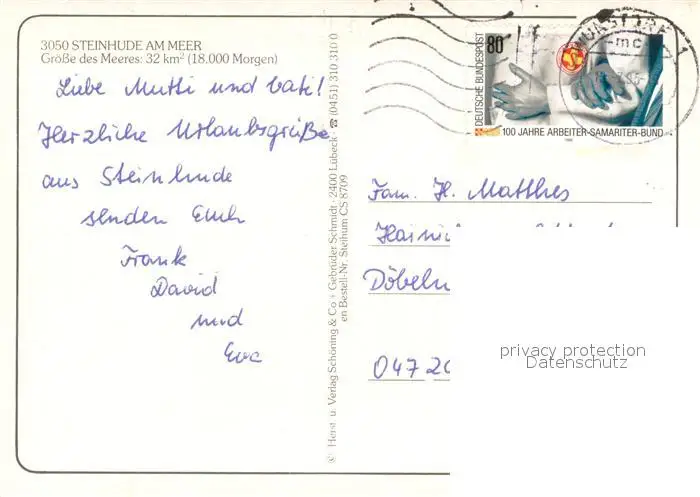 3050 STEINHUDE AM MEER
Größe des Meeres: 32 km² (18.000 Morgen)
Liebe Mutti und Vati!
Herzliche Urlaubsgrüße
aus Steinhude
senden Euch
Frank
David
und
Eva
© Herst. u. Verlag Schöning & Co + Gebrüder Schmidt · 2400 Lübeck · ☎ (0451) 310 310 0
en Bestell-Nr. Steihum CS 8709
80
DEUTSCHE BUNDESPOST
100 JAHRE ARBEITER-SAMARITER-BUND
mc
Fam. H. Matthes
Döbeln
047 20
privacy protection
Datenschutz